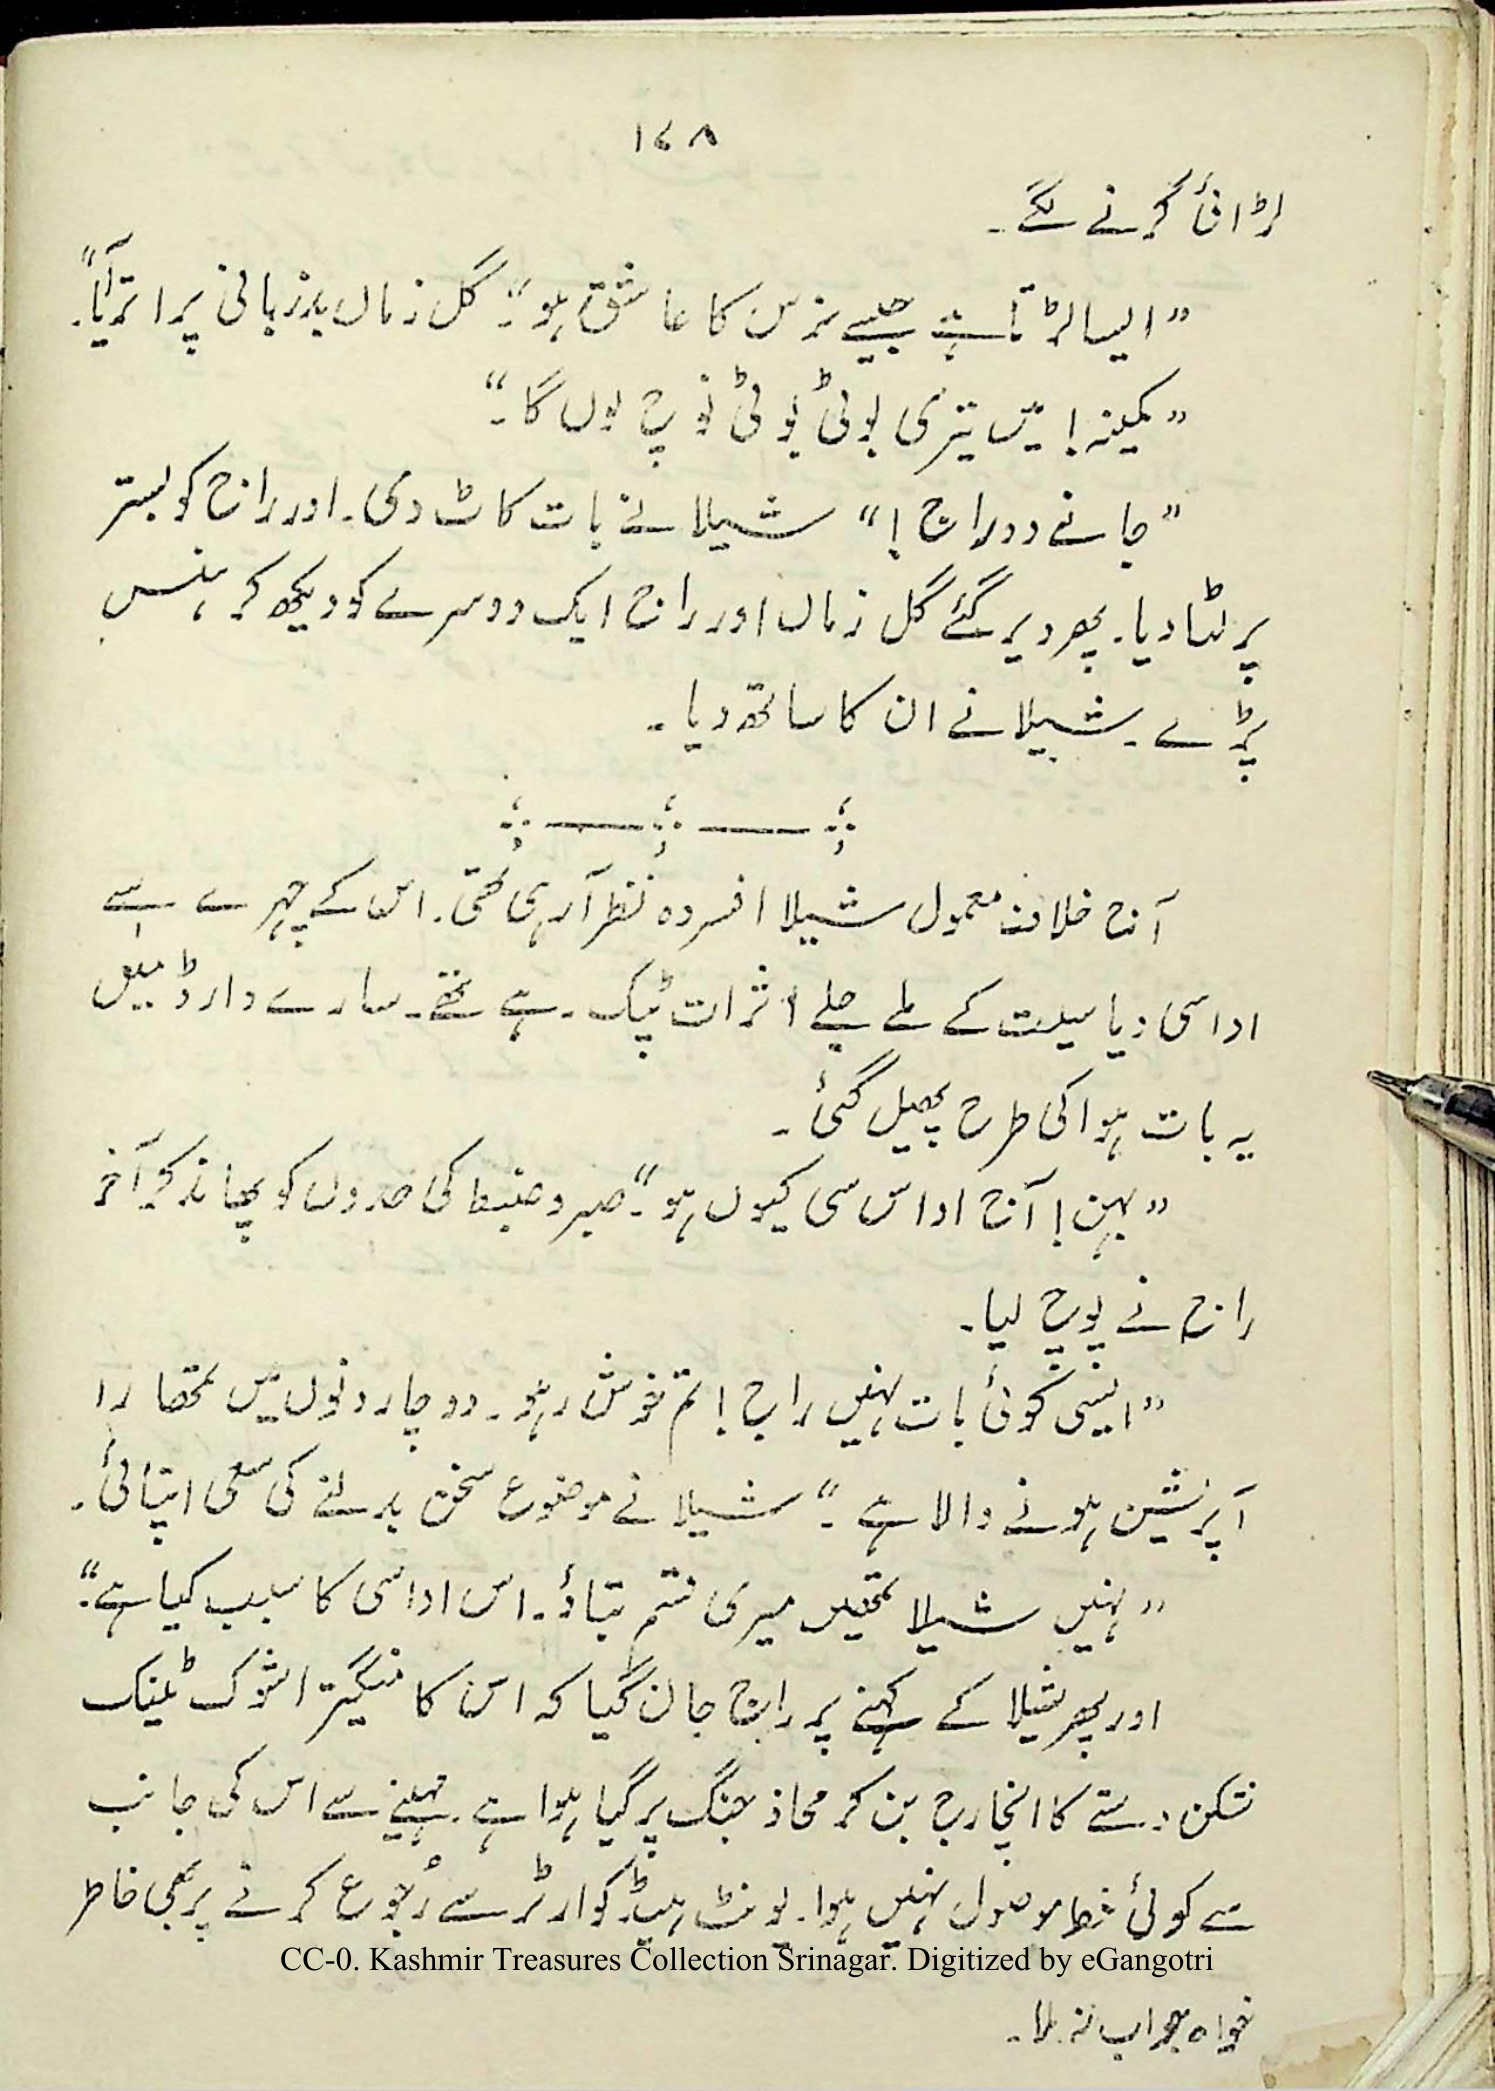 ۱۷۸
لڑائی کرنے لگے۔
”ایسا لڑتا ہے جیسے نرس کا عاشق ہو“۔ گل زماں بدزبانی پر اتر آیا۔“
”کمینہ! میں تیری بوٹی بوٹی نوچ لوں گا۔“
”جانے دو راج!“ شیلا نے بات کاٹ دی۔ اور راج کو بستر
پر لٹا دیا۔ پھر دیر گئے گل زماں اور راج ایک دوسرے کو دیکھ کر ہنس
پڑے۔ شیلا نے ان کا ساتھ دیا۔
آج خلاف معمول شیلا افسردہ نظر آرہی تھی۔ اس کے چہرے سے
اداسی ویاسیت کے ملے جلے اثرات ٹپک رہے تھے۔ سارے وارڈ میں
یہ بات ہوا کی طرح پھیل گئی۔
”بہن! آج اداس سی کیوں ہو“۔ صبر و ضبط کی حدوں کو پھاند کر آخر
راج نے پوچھ لیا۔
”ایسی کوئی بات نہیں راج! تم خوش رہو۔ دو چار دنوں میں تمھارا
آپریشن ہونے والا ہے۔“ شیلا نے موضوع سخن بدلنے کی سعی اپنائی۔
”نہیں شیلا تمھیں میری قسم بتاؤ۔ اس اداسی کا سبب کیا ہے“۔
اور پھر شیلا کے کہنے پر راج جان گیا کہ اس کا منگیتر اشوک ٹینک
شکن دستے کا انچارج بن کر محاذ جنگ پر گیا ہوا ہے۔ مہینے سے اس کی جانب
سے کوئی خط موصول نہیں ہوا۔ یونٹ ہیڈ کوارٹر سے رُجوع کرنے پر بھی خاطر
CC-0. Kashmir Treasures Collection Srinagar. Digitized by eGangotri
خواہ جواب نہ ملا۔